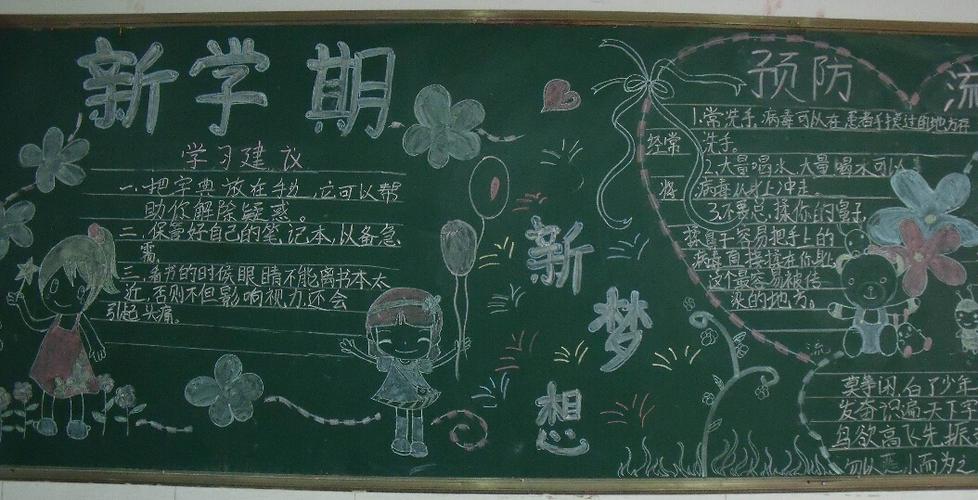 新学期
学习建议
一.把字典放在手边,它可以帮
助你解除疑惑。
二.保管好自己的笔记本,以备急
需。
三.看书的时候眼睛不能离书本太
近,否则不但影响视力,还会
引起头痛。
新
梦
想
预防 流
1.常洗手,病毒可以在患者手摸过的地方存
经常 洗手。
2.大量喝水,大量喝水可以
将 病毒从 上冲走。
3.不要总 揉你的鼻子,
揉鼻子容易把手上的
病毒直接 在你
这个最容易被传
染的地方。
流
莫等闲,白了少年
发奋识遍天下字
鸟欲高飞先振
勿以恶小而为之